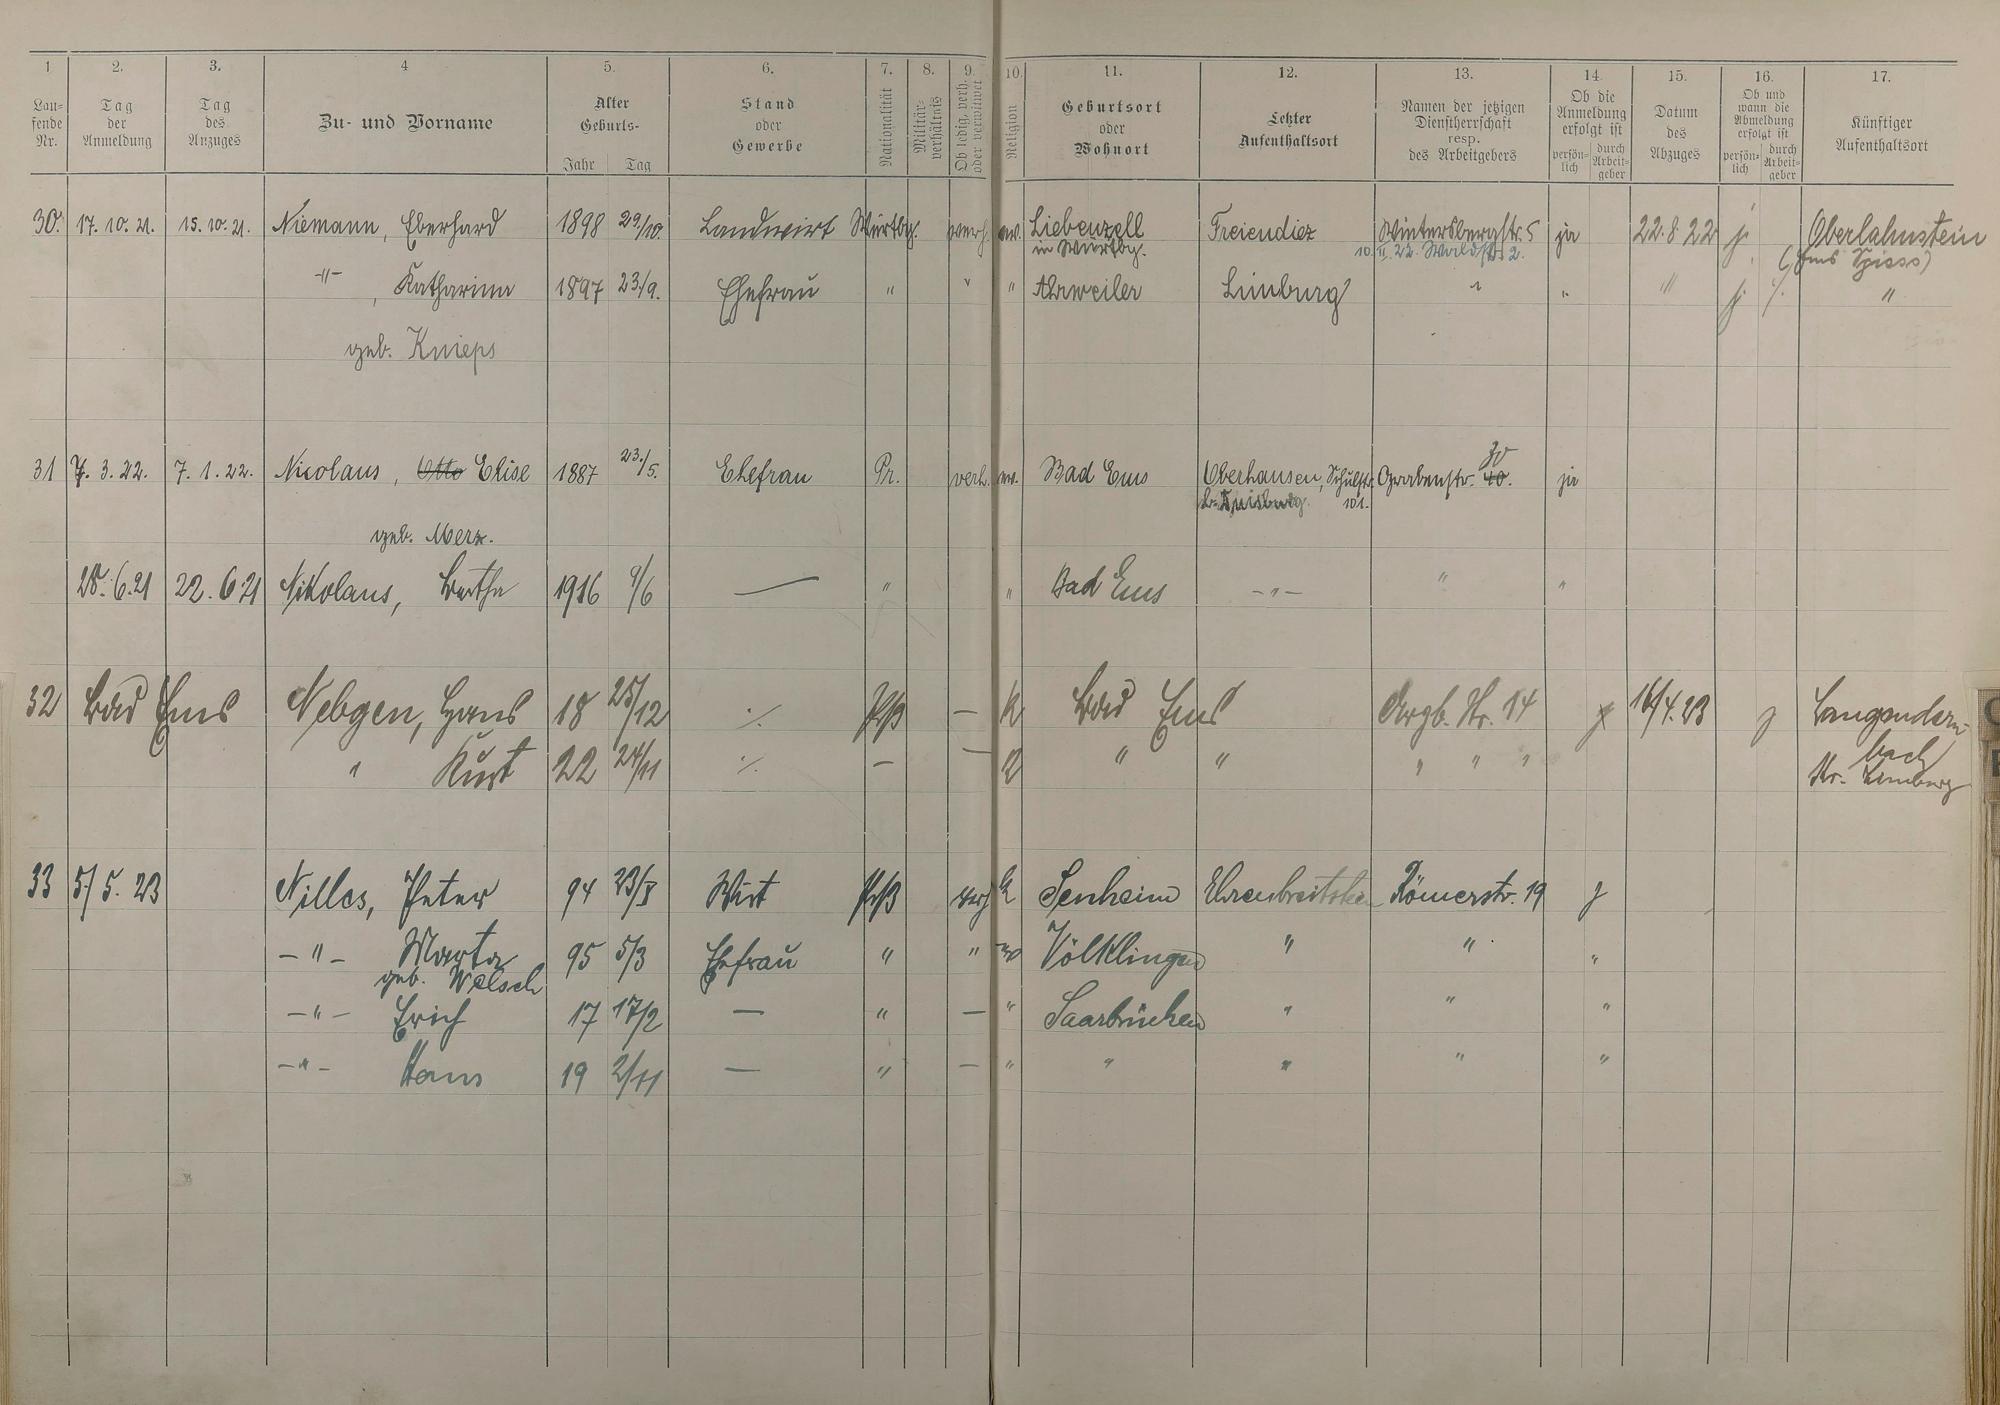 1 2. 3. 4 5. 6. 7. 8. 9. 10. 11. 12. 13. 14. 15. 16. 17.
Lau-
fende
Nr.
Tag
der
Anmeldung
Tag
des
Anzuges
Zu- und Vorname
Alter
Geburts-
Jahr Tag
Stand
oder
Gewerbe
Nationalität
Militär-
verhältnis
Ob ledig, verh.
oder verwitwet
Religion
Geburtsort
oder
Wohnort
Letzter
Aufenthaltsort
Namen der jetzigen
Dienstherrschaft
resp.
des Arbeitgebers
Ob die
Anmeldung
erfolgt ist
persön-
lich
durch
Arbeit-
geber
Datum
des
Abzuges
Ob und
wann die
Abmeldung
erfolgt ist
persön-
lich
durch
Arbeit-
geber
Künftiger
Aufenthaltsort
30. 17. 10. 21. 15. 10. 21. Niemann, Eberhard 1898 29./10. Landwirt Würtbg. verh. ev. Liebenzell Freiendiez Wintersbergstr. 5 ja 22. 8 22 j. Oberlahnstein
in Würtbg. 10. II. 22. Waldstr. 2.
-"- , Katharina 1897 23./9. Ehefrau " " " Ahrweiler Limburg " " " j. "
geb. Knieps
31 7. 3. 22. 7. 1. 22. Nicolaus, Otto Elise 1887 23./5. Ehefrau Pr. verh. ev. Bad Ems Oberhausen, Schulstr. Grabenstr. 40. 30 ja
b. Duisburg. 101.
geb. Merz.
28. 6. 21 22. 6 21 Nikolaus, Bertha 1916 9/6 — " " Bad Ems -"- " "
32 Bad Ems Nebgen, Hans 18 25/12 ./. Prß — K Bad Ems Argb. Str. 14 j 16/4. 23 j Langendern-
bach
Kr. Limburg
" Kurt 22 24/11 ./. — — " " " " "
33 5/5. 23 Nilles, Peter 94 23/X Wirt Prß verh K Senheim Ehrenbreitstein Römerstr. 19 j
-"- Marta 95 5/3 Ehefrau " " ev Völklingen " " "
geb. Welsch
-"- Erich 17 17/2 — " — " Saarbrücken " " "
-"- Hans 19 2/11 — " — " " " " "